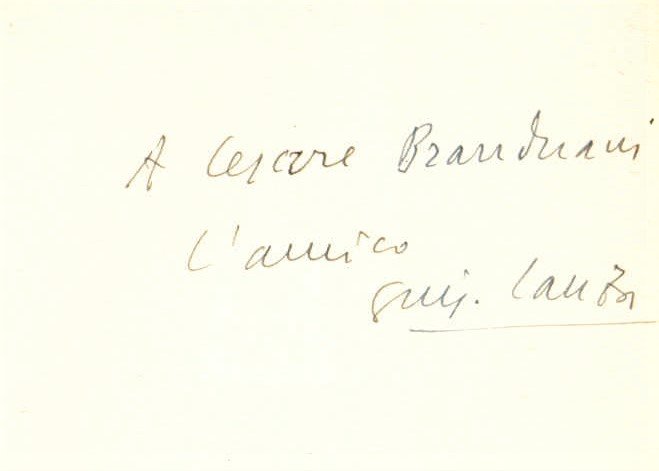 A Cesare Branduani
l'amico
Giu. Lanza